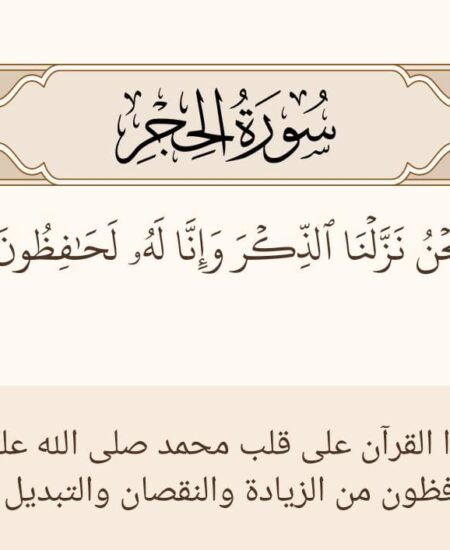 سُورَةُ الحِجْرِ
نَزَّلْنَا ٱلذِّكْرَ وَإِنَّا لَهُۥ لَحَٰفِظُونَ
القرآن على قلب محمد صلى الله
من الزيادة والنقصان والتبديل